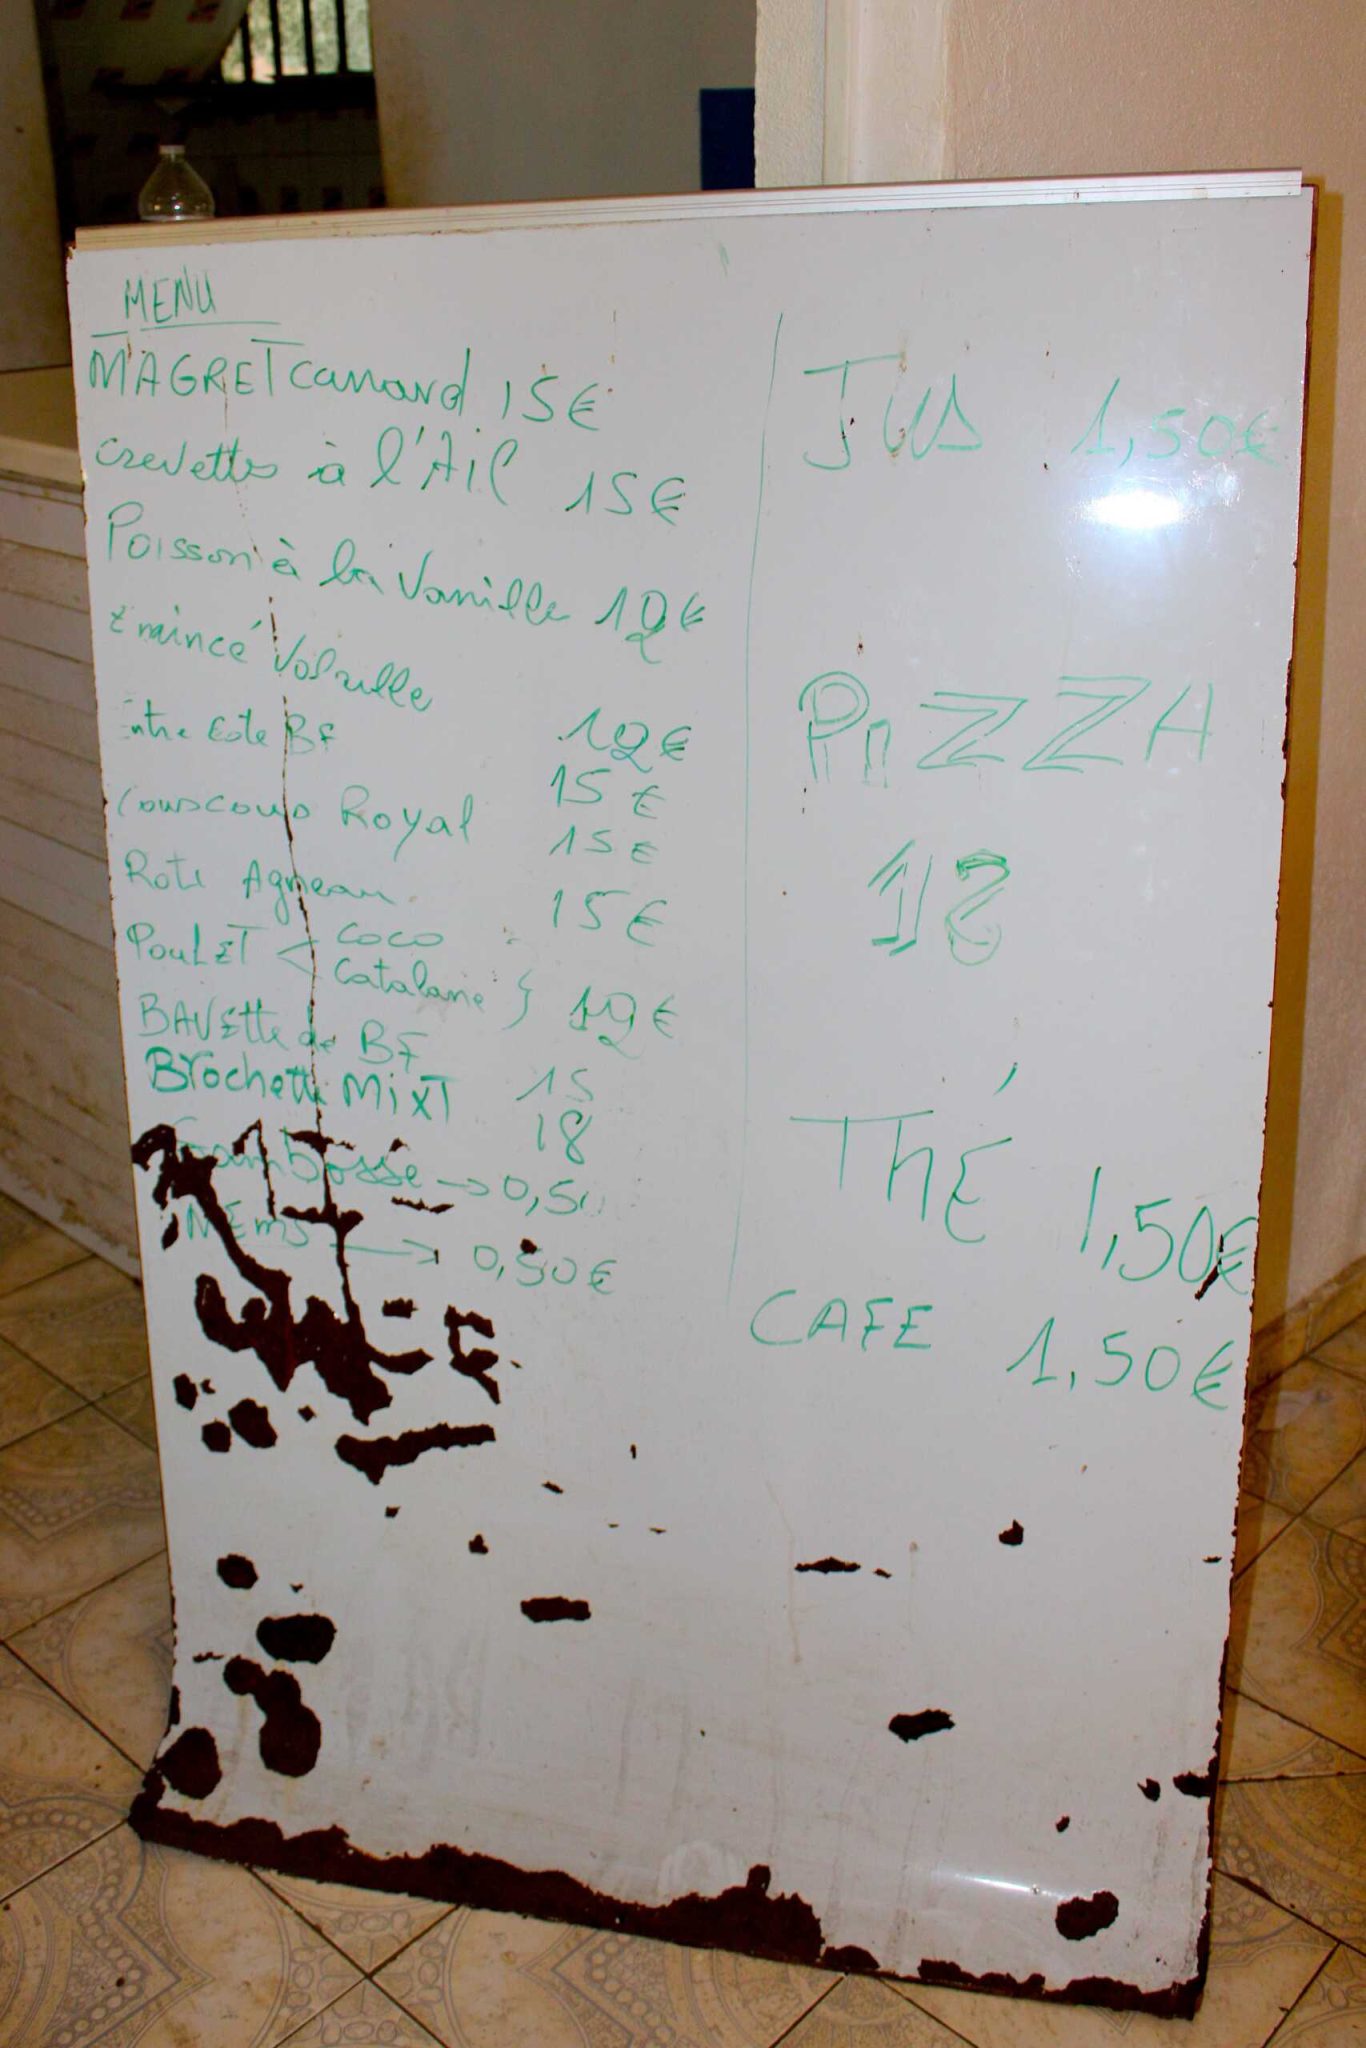 MENU
MAGRET canard 15€
crevettes à l'Ail 15€
Poisson à la Vanille 12€
Emincé Volaille 12€
Entre Cote BF 15€
Couscous Royal 15€
Roti Agneau 15€
POULET < COCO
Catalane } 12€
BAVEtte de BF 15
Brochette MixT 18
Sambossé → 0,50
NEms → 0,50€
JUS 1,50€
PIZZA
12
ThÉ 1,50€
CAFE 1,50€